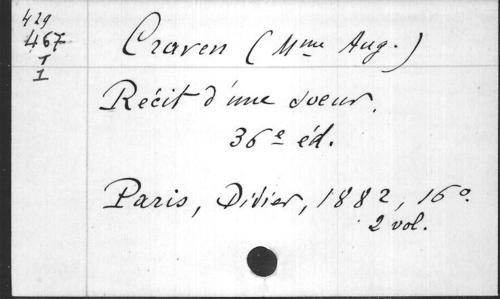 429
467
T
I
Craven (Mme Aug.)
Récit d'une soeur.
36e éd.
Paris, Didier, 1882, 16o.
2 vol.